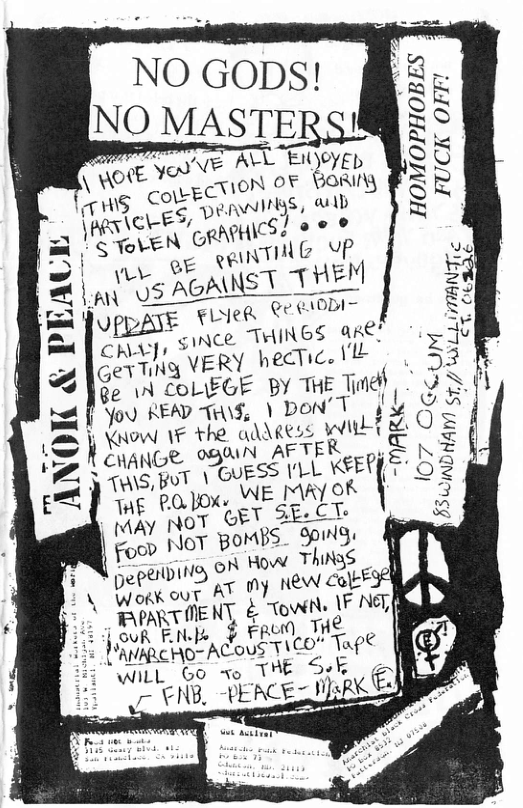 NO GODS!
NO MASTERS!
I HOPE YOU'VE ALL ENJOYED
THIS COLLECTION OF BORING
ARTICLES, DRAWINGS, and
STOLEN GRAPHICS! • • •
I'LL BE PRINTING UP
AN US AGAINST THEM
UPDATE FLYER PERIODI-
CALLY, SINCE THINGS ARE
GETTING VERY hectic. I'LL
BE IN COLLEGE BY THE Time
YOU READ THIS. I DON'T
KNOW IF the address WILL
CHANGE again AFTER
THIS, BUT I GUESS I'LL KEEP
THE P.O. BOX. WE MAY OR
MAY NOT GET S.E. CT.
FOOD NOT BOMBS going,
Depending ON HOW THINGS
WORK OUT AT MY NEW COLLEGE
APARTMENT & TOWN. IF NOT,
OUR F.N.B. $ FROM THE
"ANARCHO-ACOUSTICO" Tape
WILL GO TO THE S.F.
FNB. -PEACE- MARK E.
HOMOPHOBES
FUCK OFF!
ANOK & PEACE
-MARK-
107 OCCUM
83 WINDHAM ST. // WILLIMANTIC
CT. 06226
Industrial Workers of the World
Food Not Bombs
3145 Geary Blvd. #12
San Francisco, CA
Get Active!
Anarcho Punk Federation
PO Box 73
Odenton, MD. 21113
Anarchist Black Cross Federation
PO Box 8532
Patterson, NJ 07508